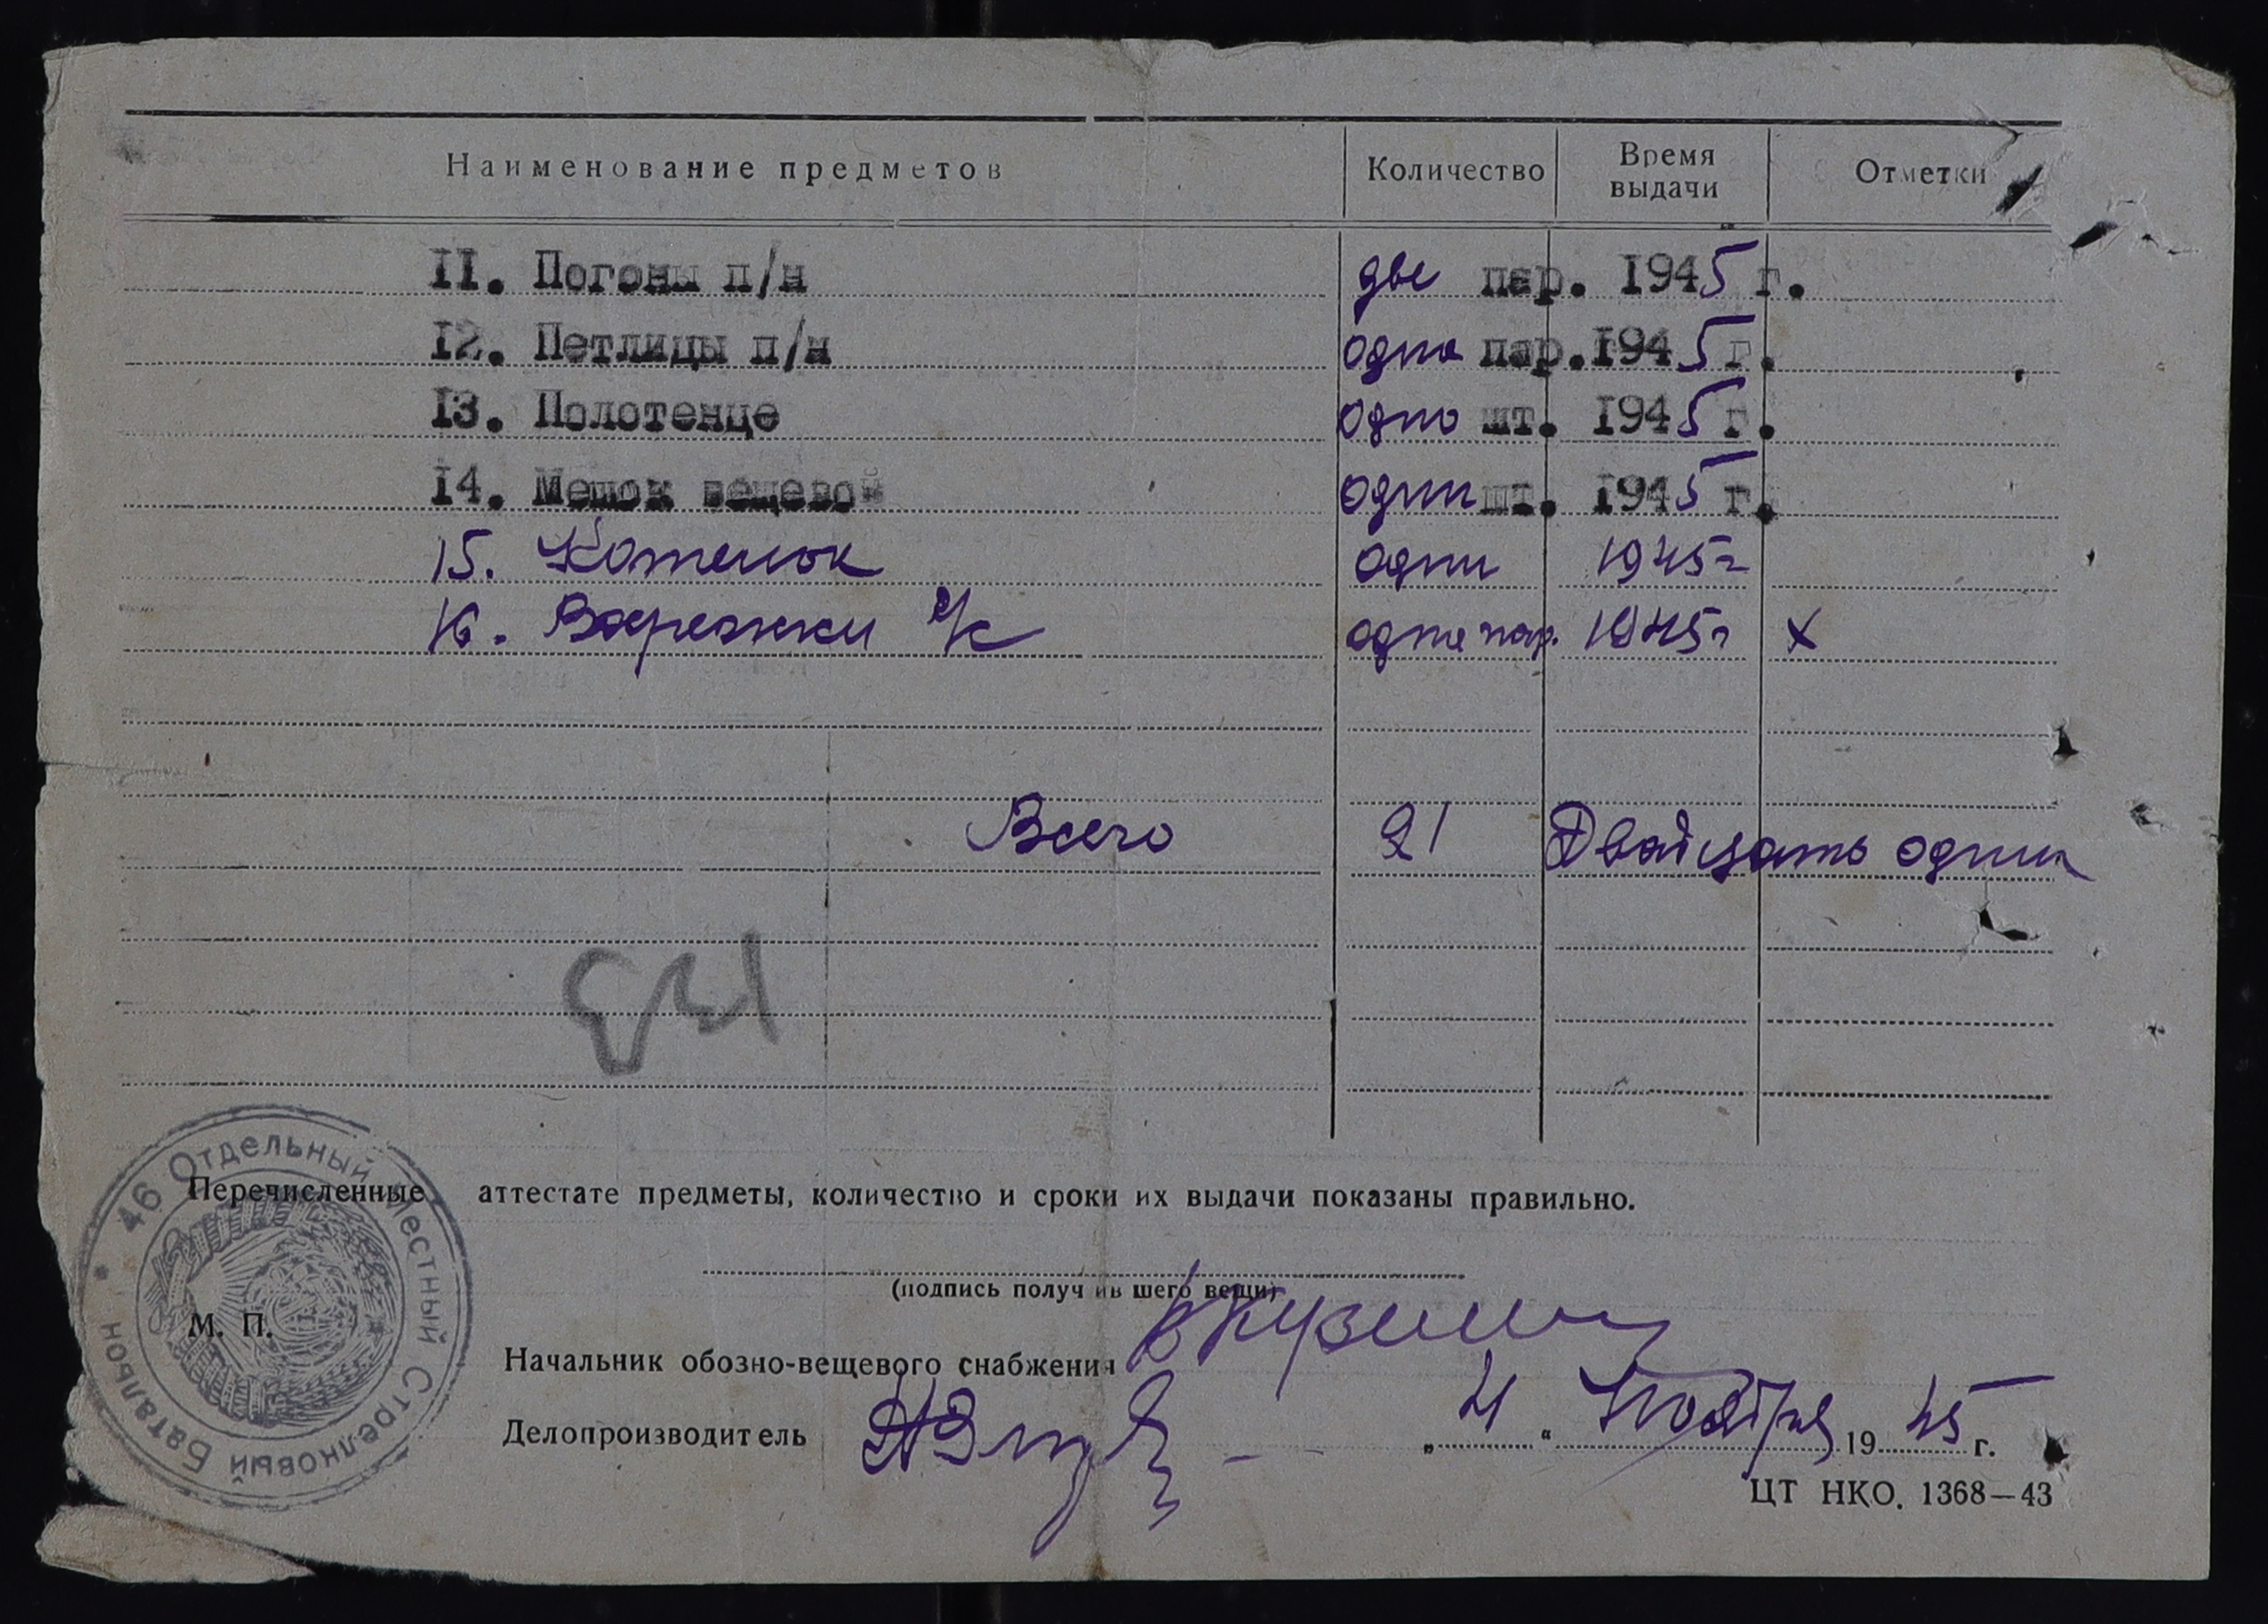 Наименование предметов Количество Время выдачи Отметки
11. Погоны п/н две пар. 1945 г.
12. Петлицы п/н одна пар. 1945 г.
13. Полотенце одно шт. 1945 г.
14. Мешок вещевой один шт. 1945 г.
15. Котелок один 1945 г
16. Варежки одна пар. 1945 г х
Всего 21 Двадцать один
46 Отдельный Местный Стрелковый Батальон
Перечисленные аттестате предметы, количество и сроки их выдачи показаны правильно.
(подпись получившего вещи)
М. П.
Начальник обозно-вещевого снабжения
Делопроизводитель
" " Ноября 1945 г.
ЦТ НКО. 1368—43